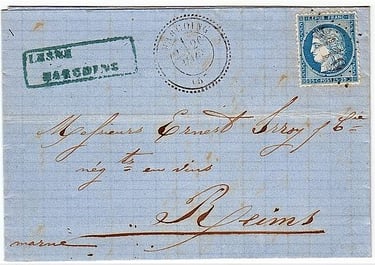 LESNE
HARCOING
REPUB. FRANC.
25 C. POSTES 25 C.
Messieurs Ernest Irroy & Cie
négts en vins
Reims
marne